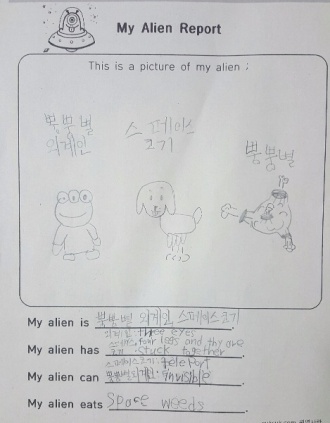 My Alien Report
This is a picture of my alien ;
뿡뿡별
외계인
스페이스
크기
뿡뿡별
My alien is 뿡뿡별 외계인, 스페이스크기.
외계인 three eyes
four legs and thy are
My alien has stuck together.
스페이스크기: teleport
My alien can 뿡뿡별외계인: invisible.
My alien eats Space weeds.